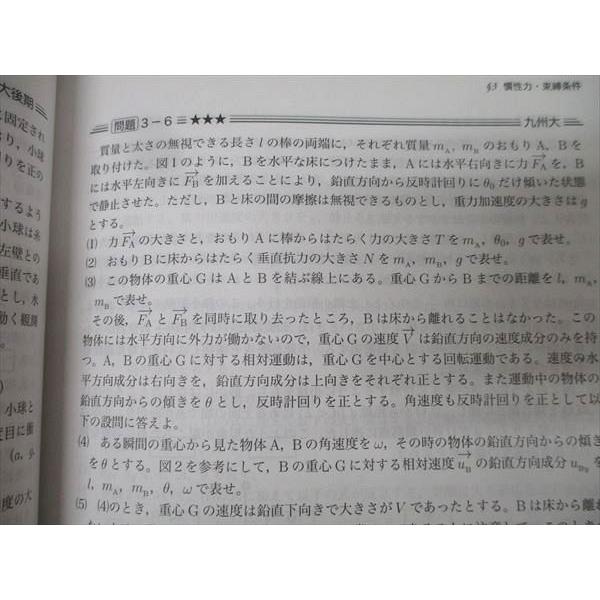 大後期
固定され
おり,小球
りを正の
するよう
小球は糸
左壁との
垂直であ
とし,水
動く範囲
。
小球と
度目に衝
度の大
§3 慣性力・束縛条件
問題 3－6 ★★★ 九州大
質量と太さの無視できる長さlの棒の両端に,それぞれ質量m_A, m_BのおもりA, Bを
取り付けた。図1のように,Bを水平な床につけたまま,Aには水平右向きに力F_A→を,B
には水平左向きにF_B→を加えることにより,鉛直方向から反時計回りにθ₀だけ傾いた状態
で静止させた。ただし,Bと床の間の摩擦は無視できるものとし,重力加速度の大きさはg
とする。
(1) 力F_A→の大きさと,おもりAに棒からはたらく力の大きさTをm_A, θ₀, gで表せ。
(2) おもりBに床からはたらく垂直抗力の大きさNをm_A, m_B, gで表せ。
(3) この物体の重心GはAとBを結ぶ線上にある。重心GからBまでの距離をl, m_A,
m_Bで表せ。
その後,F_A→とF_B→を同時に取り去ったところ,Bは床から離れることはなかった。この
物体には水平方向に外力が働かないので,重心Gの速度V→は鉛直方向の速度成分のみを持
つ。A, Bの重心Gに対する相対運動は,重心Gを中心とする回転運動である。速度の水
平方向成分は右向きを,鉛直方向成分は上向きをそれぞれ正とする。また運動中の物体の
鉛直方向からの傾きをθとし,反時計回りを正とする。角速度も反時計回りを正として以
下の設問に答えよ。
(4) ある瞬間の重心から見た物体A, Bの角速度をω, その時の物体の鉛直方向からの傾き
をθとする。図2を参考にして,Bの重心Gに対する相対速度u_B→の鉛直方向成分u_Byを
l, m_A, m_B, θ, ωで表せ。
(5) (4)のとき,重心Gの速度は鉛直下向きで大きさがVであったとする。Bは床から離れ